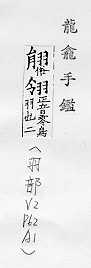 龍龕手鑑
䎆俗翎正音零鳥羽也二
(羽部
V2
P62
A1)